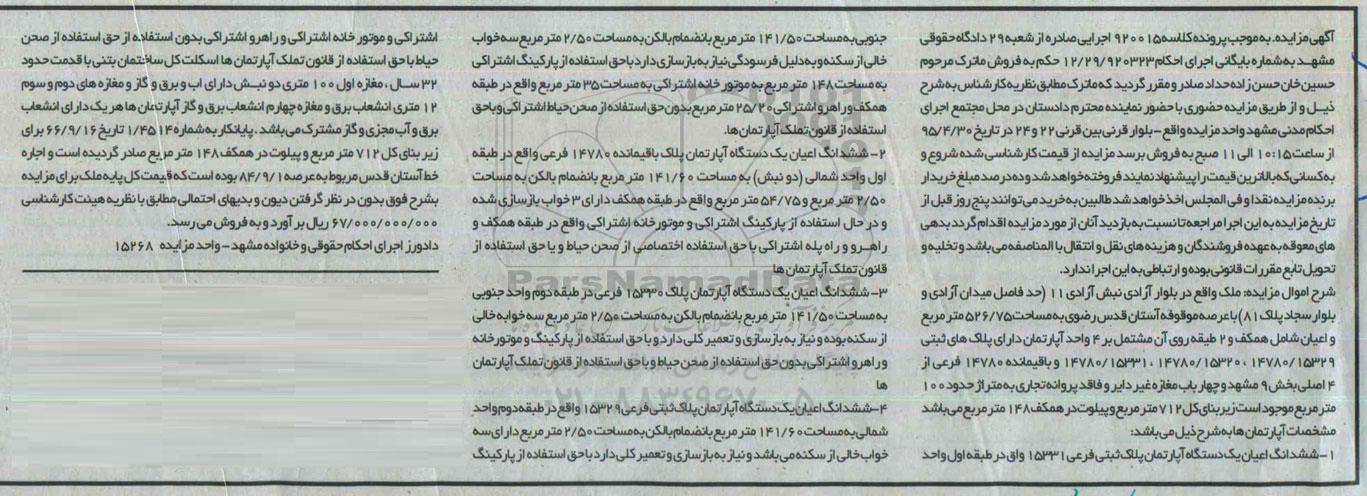 آگهی مزایده. به موجب پرونده کلاسه ۹۲۰۰۱۵ اجرایی صادره از شعبه ۲۹ دادگاه حقوقی
مشهد به شماره بایگانی اجرای احکام ۱۲/۲۹/۹۲۰۳۲۳ حکم به فروش ماترک مرحوم
حسین خان حسن زاده حداد صادر و مقرر گردید که ماترک مطابق نظریه کارشناس به شرح
ذیل و از طریق مزایده حضوری با حضور نماینده محترم دادستان در محل مجتمع اجرای
احکام مدنی مشهد واحد مزایده واقع – بلوار قرنی بین قرنی ۲۲ و ۲۴ در تاریخ ۹۵/۴/۳۰
از ساعت ۱۰:۱۵ الی ۱۱ صبح به فروش برسد مزایده از قیمت کارشناسی شده شروع و
به کسانی که بالاترین قیمت را پیشنهاد نمایند فروخته خواهد شد و ده درصد مبلغ خریدار
برنده مزایده نقدا و فی المجلس اخذ خواهد شد طالبین به خرید می توانند پنج روز قبل از
تاریخ مزایده به این اجرا مراجعه تا نسبت به بازدید آنان از مورد مزایده اقدام گردد بدهی
های معوقه به عهده فروشندگان و هزینه های نقل و انتقال با المناصفه می باشد و تخلیه و
تحویل تابع مقررات قانونی بوده و ارتباطی به این اجرا ندارد.
شرح اموال مزایده: ملک واقع در بلوار آزادی نبش آزادی ۱۱ (حد فاصل میدان آزادی و
بلوار سجاد پلاک ۸۱) با عرصه موقوفه آستان قدس رضوی به مساحت ۵۲۶/۷۵ متر مربع
و اعیان شامل همکف و ۲ طبقه روی آن مشتمل بر ۴ واحد آپارتمان دارای پلاک های ثبتی
۱۴۷۸۰/۱۵۳۲۹ ، ۱۴۷۸۰/۱۵۳۲۰ ، ۱۴۷۸۰/۱۵۳۳۱ و باقیمانده ۱۴۷۸۰ فرعی از
۴ اصلی بخش ۹ مشهد و چهار باب مغازه غیر دایر و فاقد پروانه تجاری به متراژ حدود ۱۰۰
متر مربع موجود است زیر بنای کل ۷۱۲ متر مربع و پیلوت در همکف ۱۴۸ متر مربع می باشد
مشخصات آپارتمان ها به شرح ذیل می باشد:
۱– ششدانگ اعیان یک دستگاه آپارتمان پلاک ثبتی فرعی ۱۵۳۳۱ واق در طبقه اول واحد
جنوبی به مساحت ۱۴۱/۵۰ متر مربع بانضمام بالکن به مساحت ۲/۵۰ متر مربع سه خواب
خالی از سکنه و به دلیل فرسودگی نیاز به بازسازی دارد با حق استفاده از پارکینگ اشتراکی
به مساحت ۱۴۸ متر مربع به موتور خانه اشتراکی به مساحت ۳۵ متر مربع واقع در طبقه
همکف و راهرو اشتراکی ۲۵/۲۰ متر مربع بدون حق استفاده از صحن حیاط اشتراکی و باحق
استفاده از قانون تملک آپارتمان ها.
۲– ششدانگ اعیان یک دستگاه آپارتمان پلاک باقیمانده ۱۴۷۸۰ فرعی واقع در طبقه
اول واحد شمالی (دو نبش) به مساحت ۱۴۱/۶۰ متر مربع بانضمام بالکن به مساحت
۲/۵۰ متر مربع و ۵۴/۷۵ متر مربع واقع در طبقه همکف دارای ۳ خواب بازسازی شده
و در حال استفاده از پارکینگ اشتراکی و موتور خانه اشتراکی واقع در طبقه همکف و
راهرو و راه پله اشتراکی با حق استفاده اختصاصی از صحن حیاط و یا حق استفاده از
قانون تملک آپارتمان ها
۳– ششدانگ اعیان یک دستگاه آپارتمان پلاک ۱۵۳۳۰ فرعی در طبقه دوم واحد جنوبی
به مساحت ۱۴۱/۵۰ متر مربع بانضمام بالکن به مساحت ۲/۵۰ متر مربع سه خوابه خالی
از سکنه بوده و نیاز به بازسازی و تعمیر کلی دارد و با حق استفاده از پارکینگ و موتورخانه
و راهرو اشتراکی بدون حق استفاده از صحن حیاط و با حق استفاده از قانون تملک آپارتمان
ها
۴– ششدانگ اعیان یک دستگاه آپارتمان پلاک ثبتی فرعی ۱۵۳۲۹ واقع در طبقه دوم واحد
شمالی به مساحت ۱۴۱/۶۰ متر مربع بانضمام بالکن به مساحت ۲/۵۰ متر مربع دارای سه
خواب خالی از سکنه می باشد و نیاز به بازسازی و تعمیر کلی دارد با حق استفاده از پارکینگ
اشتراکی و موتور خانه اشتراکی و راهرو اشتراکی بدون استفاده از حق استفاده از صحن
حیاط با حق استفاده از قانون تملک آپارتمان ها اسکلت کل ساختمان بتنی با قدمت حدود
۳۲ سال ، مغازه اول ۱۰۰ متری دو نبش دارای اب و برق و گاز و مغازه های دوم و سوم
۱۲ متری انشعاب برق و مغازه چهارم انشعاب برق و گاز آپارتمان ها هر یک دارای انشعاب
برق و آب مجزی و گاز مشترک می باشد . پایانکار به شماره ۱/۴۵۱۴ تاریخ ۶۶/۹/۱۶ برای
زیر بنای کل ۷۱۲ متر مربع و پیلوت در همکف ۱۴۸ متر مربع صادر گردیده است و اجاره
خط آستان قدس مربوط به عرصه ۸۴/۹/۱ بوده است که قیمت کل پایه ملک برای مزایده
بشرح فوق بدون در نظر گرفتن دیون و بدیهای احتمالی مطابق با نظریه هیئت کارشناسی
۶۷/۰۰۰/۰۰۰/۰۰۰ ریال بر آورد و به فروش می رسد.
دادورز اجرای احکام حقوقی و خانواده مشهد – واحد مزایده ۱۵۲۶۸
ParsNamadData
۰۲۱-۸۸۳۴۹۶۷۰-۵